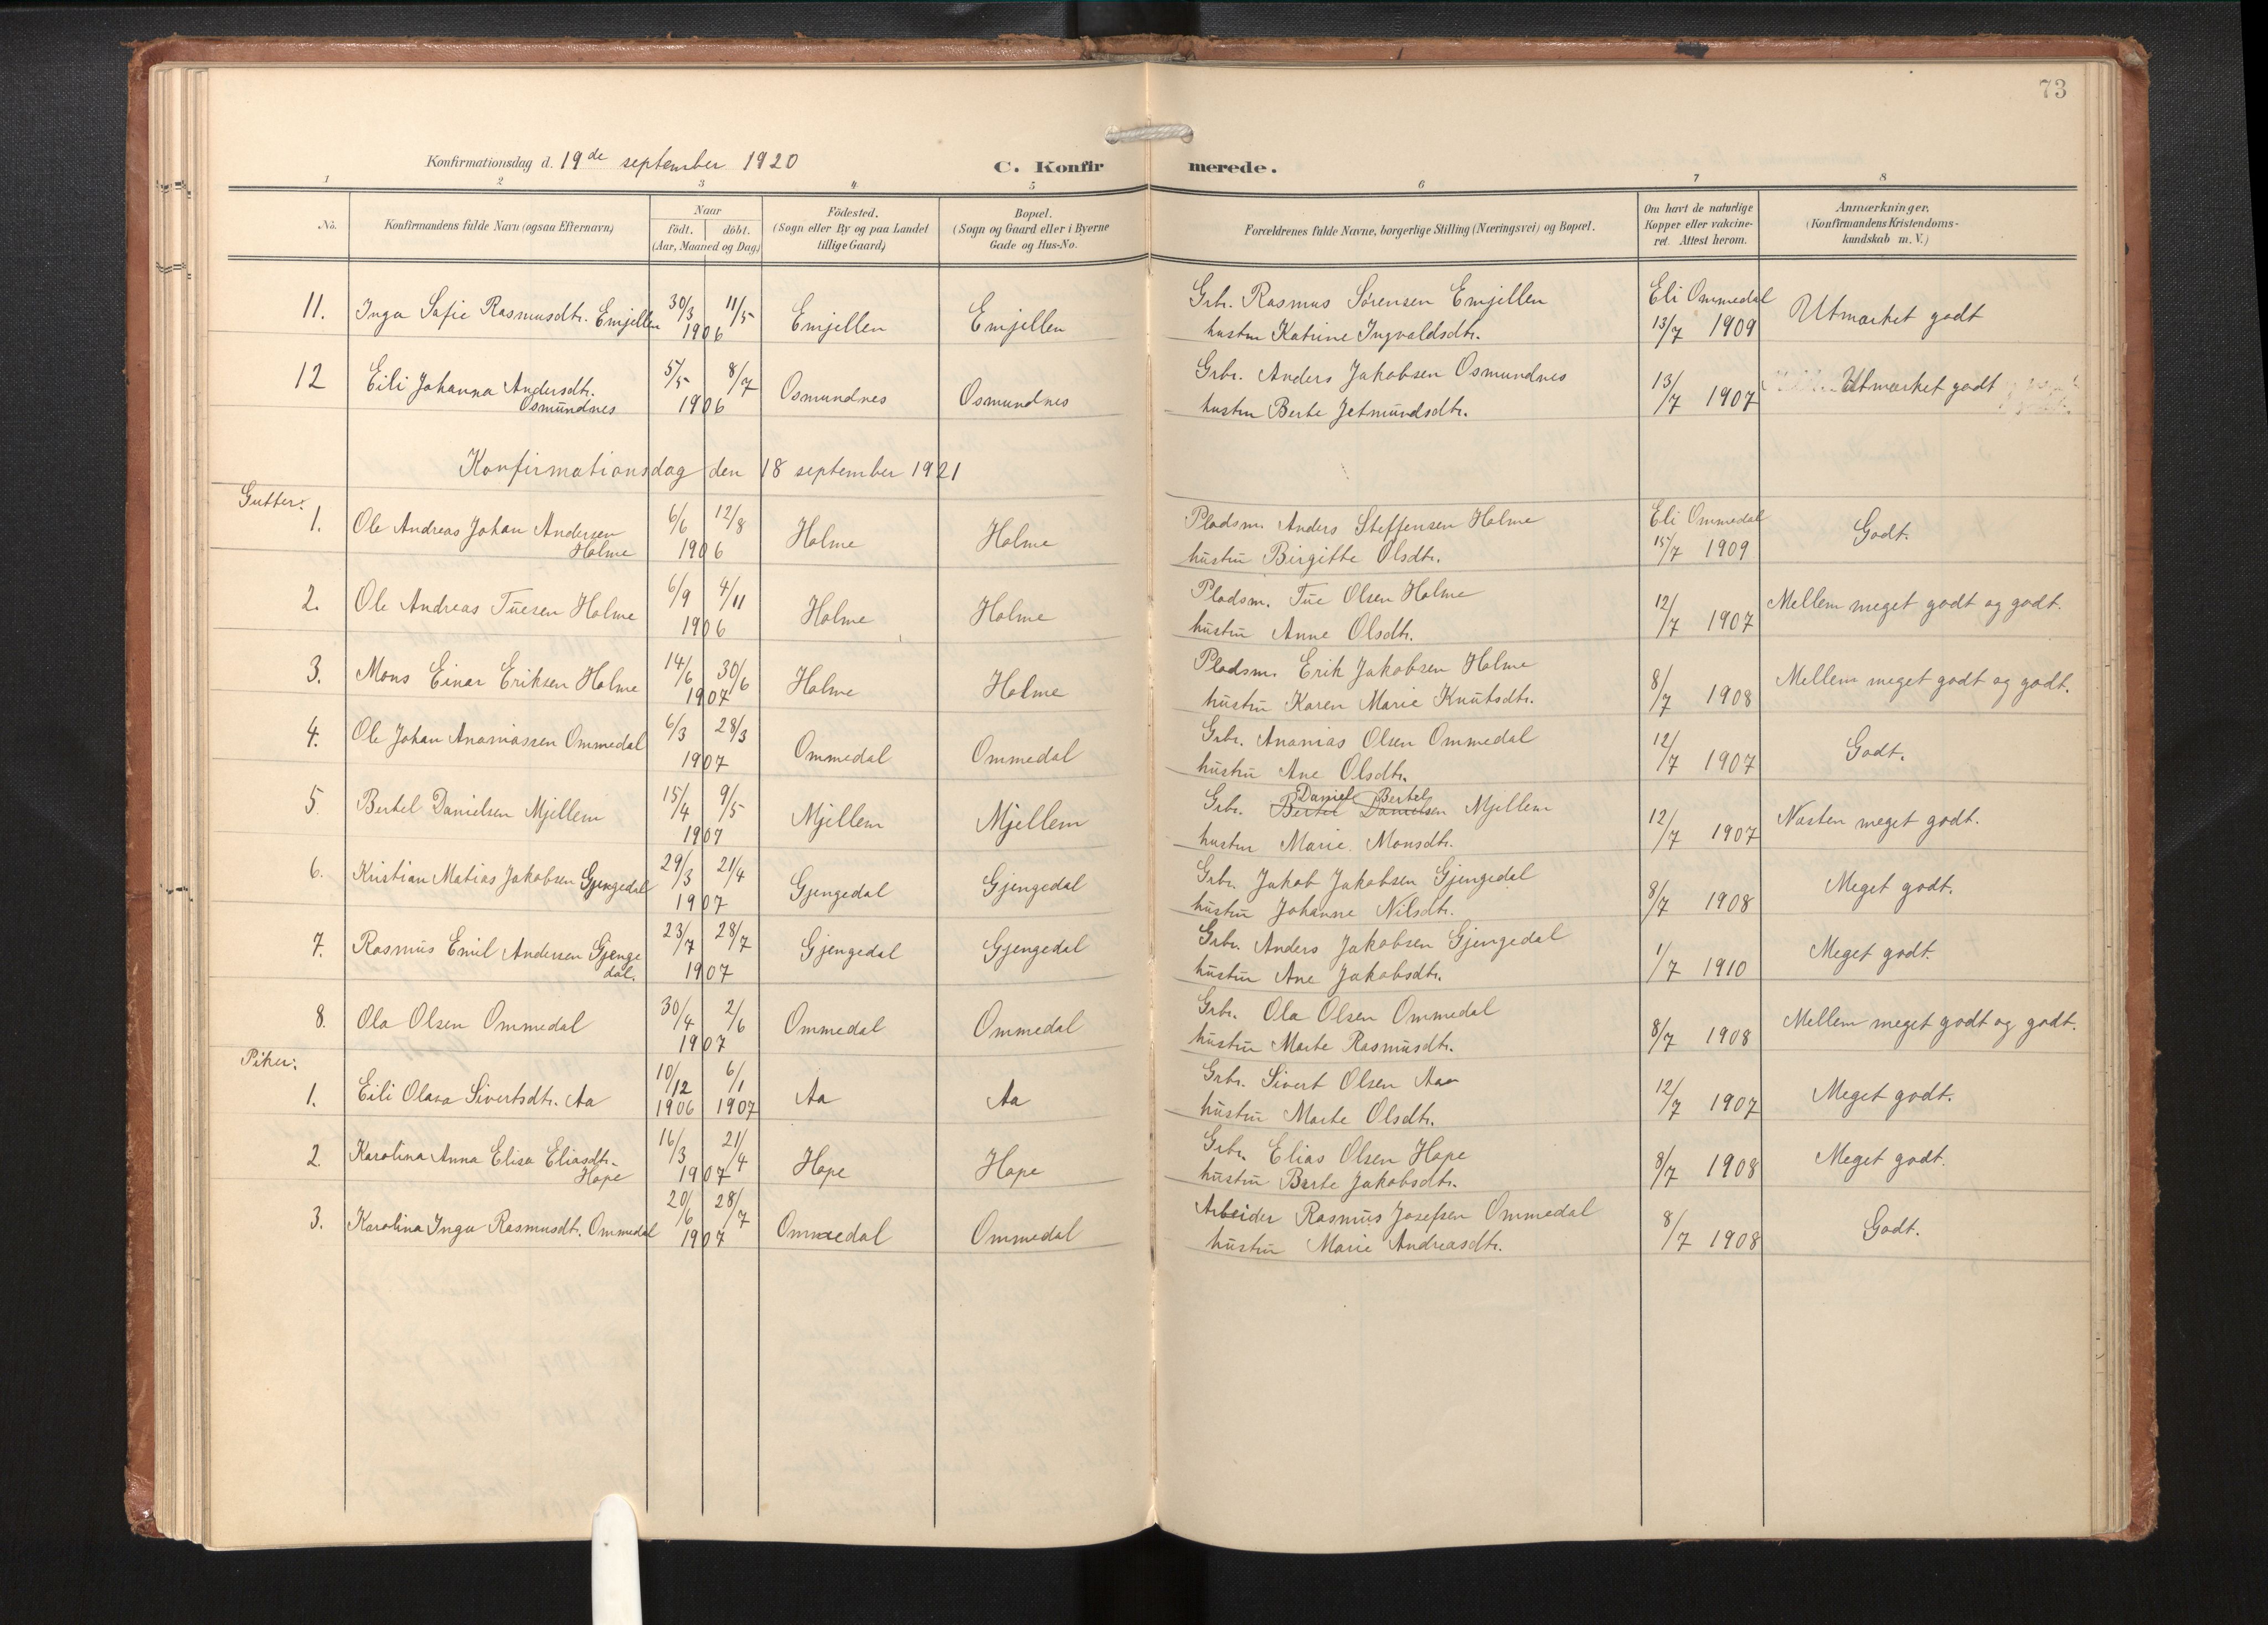 73
Konfirmationsdag d. 19de september 1920
C. Konfirmerede.
1 2 3 4 5 6 7 8
No.
Konfirmandens fulde Navn (ogsaa Efternavn)
Naar
født. döbt.
(Aar, Maaned og Dag)
Födested.
(Sogn eller By og paa Landet
tillige Gaard)
Bopæl.
(Sogn og Gaard eller i Byerne
Gade og Hus-No.
Forældrenes fulde Navne, borgerlige Stilling (Næringsvei) og Bopæl.
Om havt de naturlige
Kopper eller vakcine-
ret. Attest herom.
Anmærkninger.
(Konfirmandens Kristendoms-
kundskab m. V.)
11. Inga Sofie Rasmusdtr. Emjellen 30/3 11/5 1906 Emjellen Emjellen
Grbr. Rasmus Sörensen Emjellen
hustru Katrine Ingvaldsdtr.
Eli Ommedal
13/7 1909
Utmærket godt
12 Eili Johanna Andersdtr.
Osmundnes
5/5 8/7
1906
Osmundnes Osmundnes
Grbr. Anders Jakobsen Osmundnes
hustru Berte Jetmundsdtr.
13/7 1907
Utmærket godt
Konfirmationsdag den 18 september 1921
Gutter:
1. Ole Andreas Johan Andersen
Holme
6/6 12/8
1906
Holme Holme
Pladsm. Anders Steffensen Holme
hustru Birgitte Olsdtr.
Eli Ommedal
15/7 1909
Godt.
2. Ole Andreas Tuesen Holme
6/9 4/11
1906
Holme Holme
Pladsm. Tue Olsen Holme
hustru Anne Olsdtr.
12/7 1907
Mellem meget godt og godt.
3. Mons Einar Eriksen Holme
14/6 30/6
1907
Holme Holme
Pladsm. Erik Jakobsen Holme
hustru Karen Marie Knutsdtr.
8/7 1908
Mellem meget godt og godt.
4. Ole Johan Ananiassen Ommedal
6/3 28/3
1907
Ommedal Ommedal
Grbr. Ananias Olsen Ommedal
hustru Ane Olsdtr.
12/7 1907
Godt.
5 Bertel Danielsen Mjellem
15/4 9/5
1907
Mjellem Mjellem
Daniel Bertel
Grbr. Bertel Danielsen Mjellem
hustru Marie. Monsdtr.
12/7 1907
Næsten meget godt.
6. Kristian Matias Jakobsen Gjengedal
29/3 21/4
1907
Gjengedal Gjengedal
Grbr. Jakob Jakobsen Gjengedal
hustru Johanne Nilsdtr.
8/7 1908
Meget godt.
7. Rasmus Emil Andersen Gjenge
dal.
23/7 28/7
1907
Gjengedal Gjengedal
Grbr. Anders Jakobsen Gjengedal
hustru Ane Jakobsdtr.
1/7 1910
Meget godt.
8. Ola Olsen Ommedal
30/4 2/6
1907
Ommedal Ommedal
Grbr. Ola Olsen Ommedal
hustru Marte Rasmusdtr.
8/7 1908
Mellem meget godt og godt.
Piker:
1. Eili Olava Sivertsdtr. Aa
10/12 6/1
1906 1907
Aa Aa
Grbr. Sivert Olsen Aa
hustru Marte Olsdtr.
12/7 1907
Meget godt.
2. Karolina Anna Elisa Eliasdtr.
Hope
16/3 21/4
1907
Hope Hope
Grbr. Elias Olsen Hope
hustru Berte Jakobsdtr.
8/7 1908
Meget godt.
3. Karolina Inga Rasmusdtr. Ommedal
20/6 28/7
1907
Ommedal Ommedal
Arbeider Rasmus Josefsen Ommedal
hustru Marie Andreasdtr.
8/7 1908
Godt.